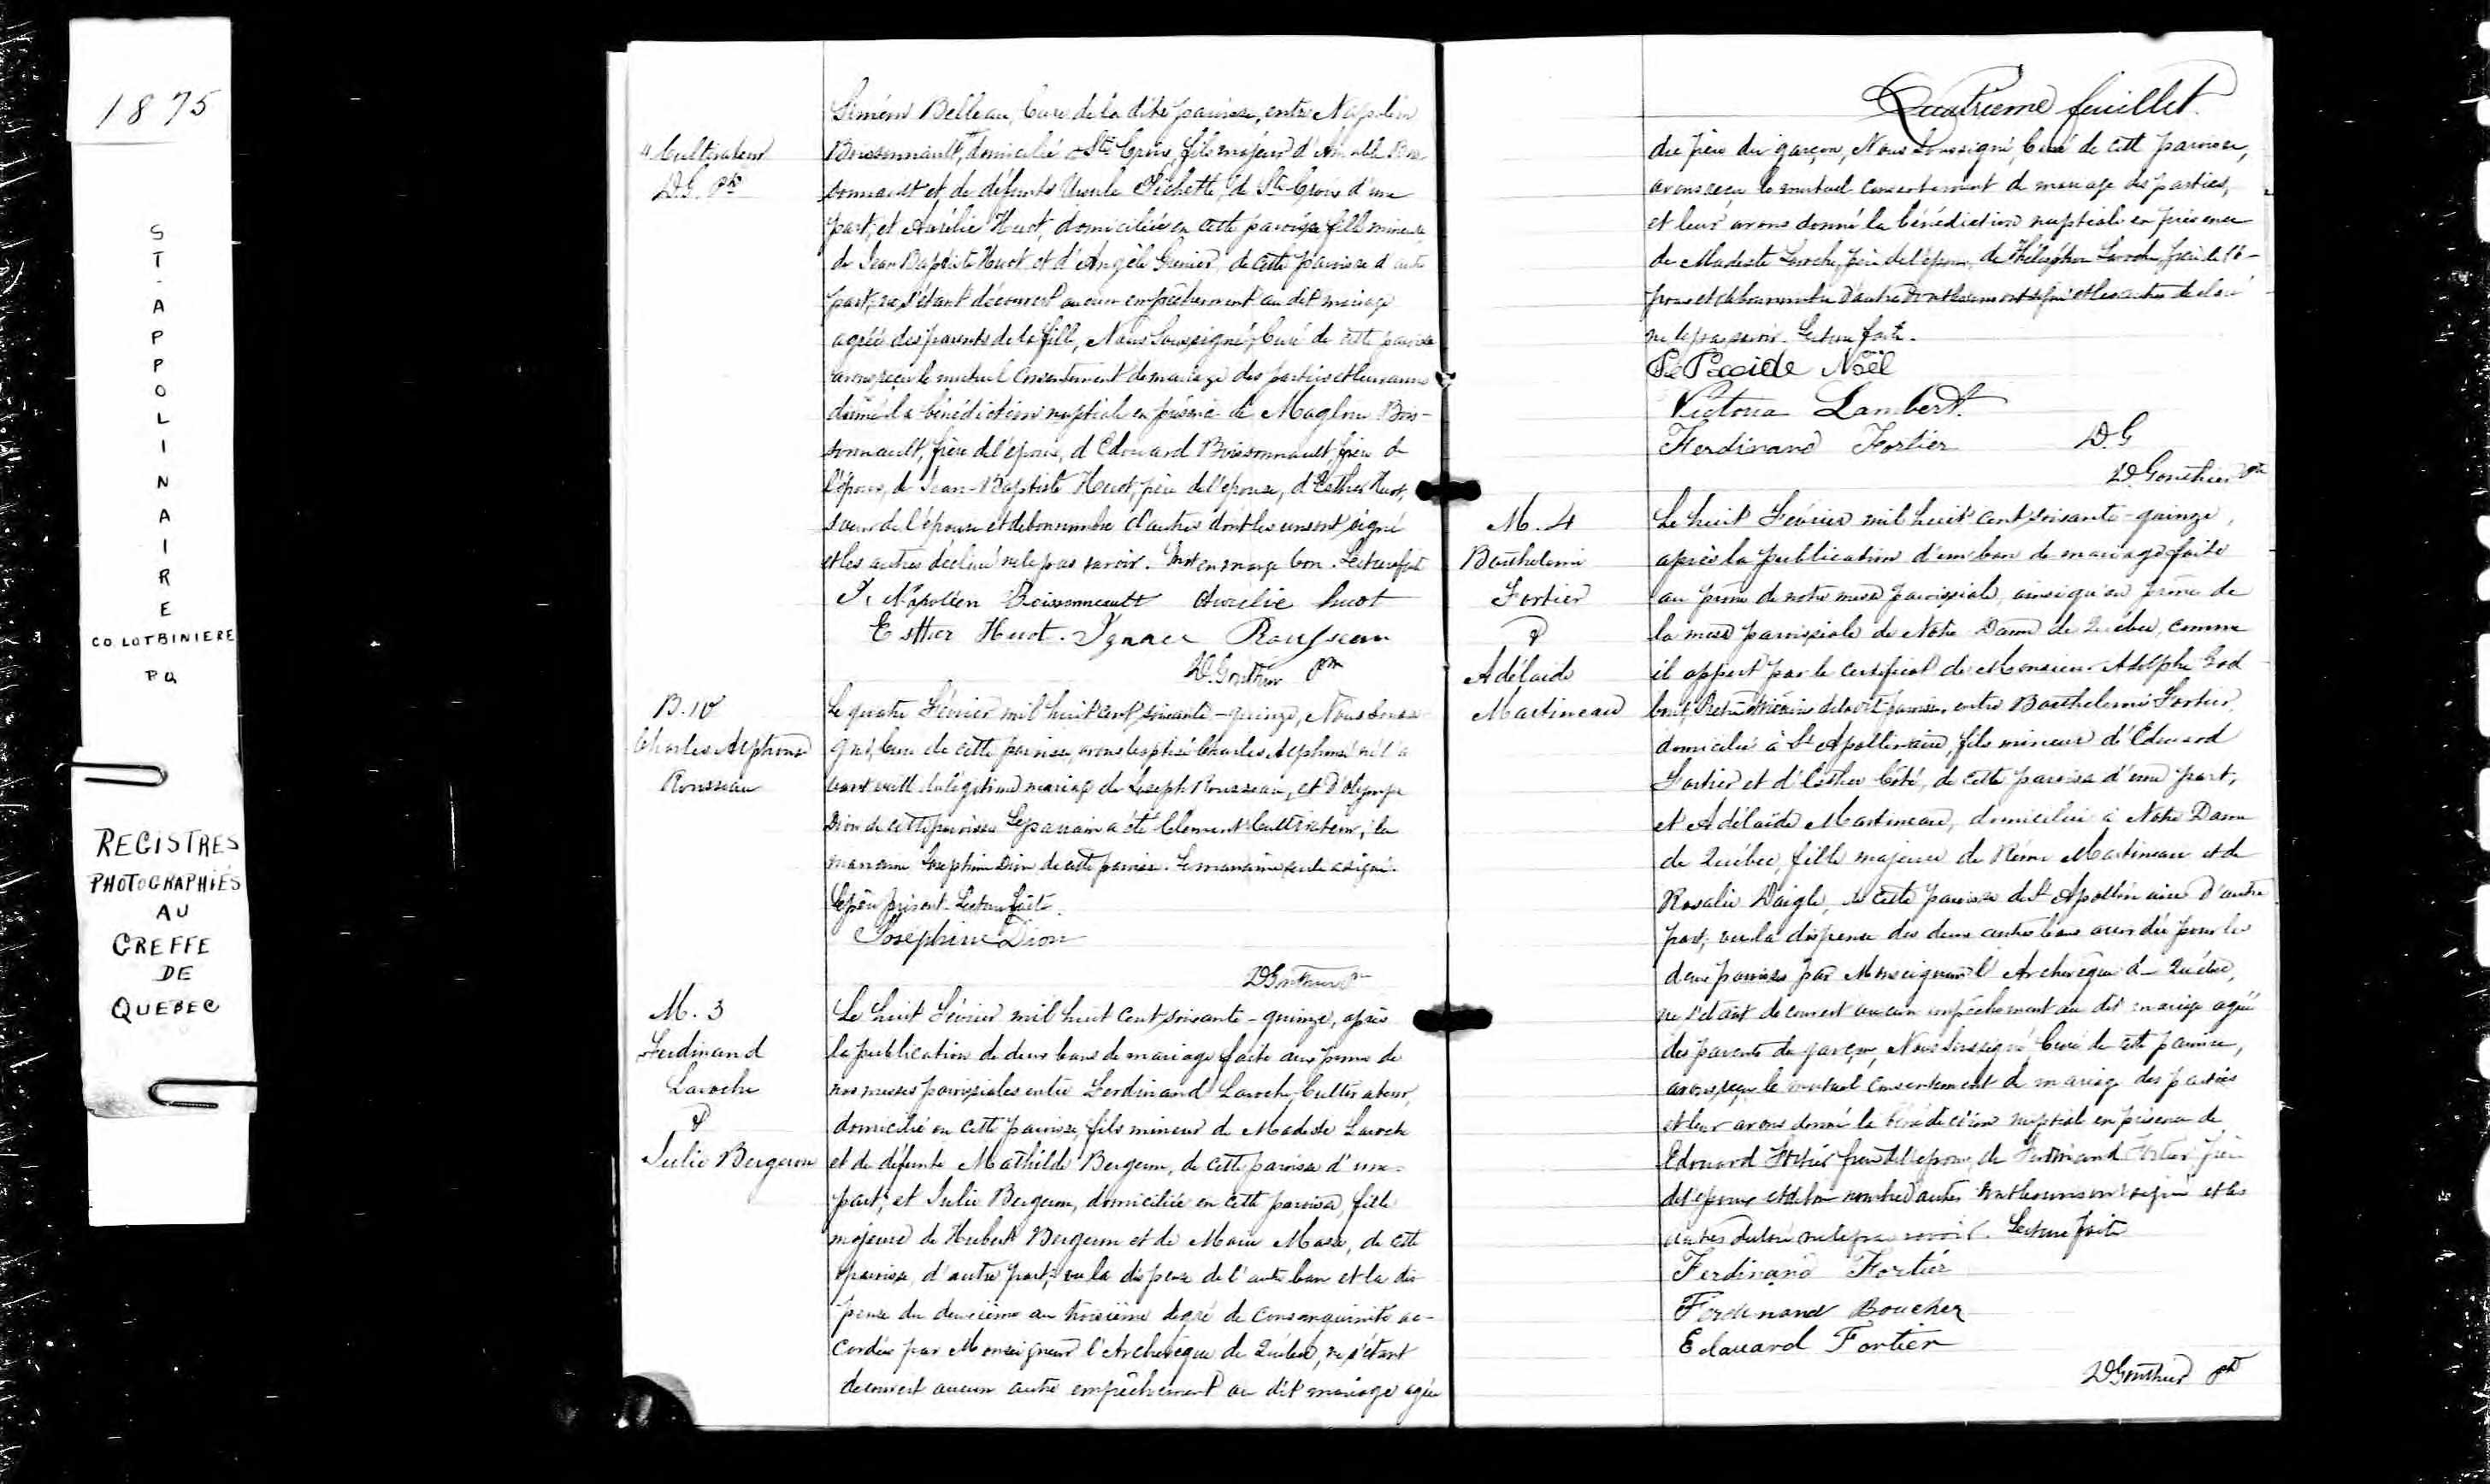 1875
ST-APPOLINAIRE
CO. LOTBINIERE
P Q
REGISTRES
PHOTOGRAPHIÉS
AU
GREFFE
DE
QUEBEC
Siméon Belleau, Curé de la dite paroisse, entre Napoléon
4 Cultivateur
D.G. Ptre
Boissonnault, domicilié à Ste Croix, fils majeur d'Amable Bois
sonnault et de défunte Ursule Pichette, de Ste Croix d'une
part, et Aurélie Huot, domiciliée en cette paroisse fille mineure
de Jean Baptiste Huot et d'Angèle Grenier, de cette paroisse d'autre
part, ne s'étant découvert aucun empêchement au dit mariage
agréé des parents de la fille, Nous Soussigné, Curé de cette paroisse
avons reçu le mutuel consentement de mariage des parties et leur avons
donné la bénédiction nuptiale en présence de Magloire Bois-
sonnault, frère de l'époux, d'Edouard Boissonnault, frère de
l'époux, de Jean-Baptiste Huot, père de l'épouse, d'Esther Huot,
soeur de l'épouse et de bon nombre d'autres dont les uns ont signé
et les autres déclaré ne le pas savoir. Mot en marge bon. Lecture faite
J. Napoléon Boissonneault Aurelie huot
Esther Huot. Ignace Rousseau
D. Gonthier Ptre
B. 10
Charles Alphonse
Rousseau
Le quatre Février mil huit cent soixante-quinze, Nous Soussi
gné, Curé de cette paroisse, avons baptisé Charles Alphonse né l'a
vant veille du légitime mariage de Joseph Rousseau, et d'Olympe
Dion de cette paroisse. Le parrain a été Clement Cultivateur, la
marraine Josephine Dion de cette paroisse. La marraine seule a signé.
Le père présent. Lecture faite.
Joséphine Dion
D Gonthier Ptre
M. 3
Ferdinand
Laroche
&
Julie Bergeron
Le huit Février mil huit cent soixante-quinze, après
la publication de deux bans de mariage faite aux prônes de
nos messes paroissiales entre Ferdinand Laroche, Cultivateur,
domicilié en cette paroisse, fils mineur de Modeste Laroche
et de défunte Mathilde Bergeron, de cette paroisse d'une
part, et Julie Bergeron, domiciliée en cette paroisse, fille
majeure de Hubert Bergeron et de Marie Masse, de cette
paroisse, d'autre part, vu la dispense de l'autre ban et la dis
pense du deuxième au troisième degré de consanguinité ac-
cordée par Monseigneur l'Archevêque de Québec, ne s'étant
découvert aucun autre empêchement au dit mariage agréé
Quatrieme feuillet.
du père du garçon, Nous Soussigné, Curé de cette paroisse,
avons reçu le mutuel consentement de mariage des parties,
et leur avons donné la bénédiction nuptiale en présence
de Modeste Laroche, père de l'époux, de Thélesphore Laroche, frère de l'é-
poux et de bon nombre d'autres dont les uns ont signé et les autres déclaré
ne le pas savoir. Lecture faite.
Placide Noël
Victoria Lambert.
Ferdinand Fortier D.G
D. Gonthier Ptre
M. 4
Barthelemi
Fortier
&
Adélaide
Martineau
Le huit Février mil huit cent soixante-quinze,
après la publication d'un ban de mariage faite
au prône de notre messe paroissiale, ainsi qu'au prône de
la messe paroissiale de Notre Dame de Québec, comme
il appert par le certificat de Monsieur Adolphe God
bout, Prêtre Vicaire de la dite paroisse, entre Barthelemi Fortier,
domicilié à St Apollinaire, fils mineur d'Edouard
Fortier et d'Esther Côté, de cette paroisse d'une part,
et Adélaïde Martineau, domiciliée à Notre Dame
de Québec, fille majeure de Rémi Martineau et de
Rosalie Daigle, de cette paroisse de St Apollinaire d'autre
part, vu la dispense des deux autres bans accordée pour les
deux paroisses par Monseigneur l'Archevêque de Québec,
ne s'étant découvert aucun empêchement au dit mariage agréé
des parents du garçon, Nous Soussigné, Curé de cette paroisse,
avons reçu le mutuel consentement de mariage des parties
et leur avons donné la bénédiction nuptiale en présence de
Edouard Fortier frère de l'époux, de Ferdinand Fortier frère
de l'époux et de bon nombre d'autres dont les uns ont signé et les
autres déclaré ne le pas savoir. Lecture faite
Ferdinand Fortier
Ferdinand Boucher
Edouard Fortier
D Gonthier Ptre